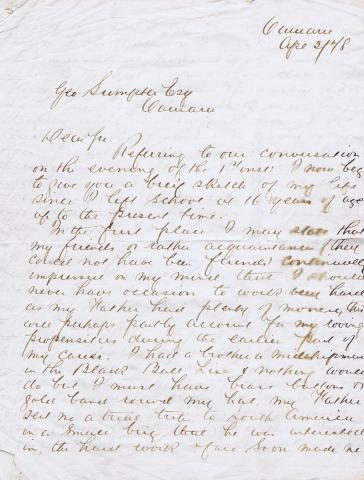 Oamaru
Apr 2/78
Geo Sumpter Esq
Oamaru
Dear Sir
Referring to our conversation
on the evening of the 1st inst: I now beg
to give you a brief sketch of my life
since I left school at 16 years of age
up to the present time.
In the first place I may state that
my friends or rather acquaintances (they
could not have been friends) continually
impressed on my mind that I should
never have occasion to work hard
as my Father had plenty of money, this
will perhaps partly account for my roving
propensities during the earlier part of
my career. I had a brother a midshipman
in the Black Ball Line & nothing would
do but I must have brass buttons or
gold band round my hat, my Father
sent me a trip to South America
in a small brig that he was interested
in, the hard work & fare soon made me